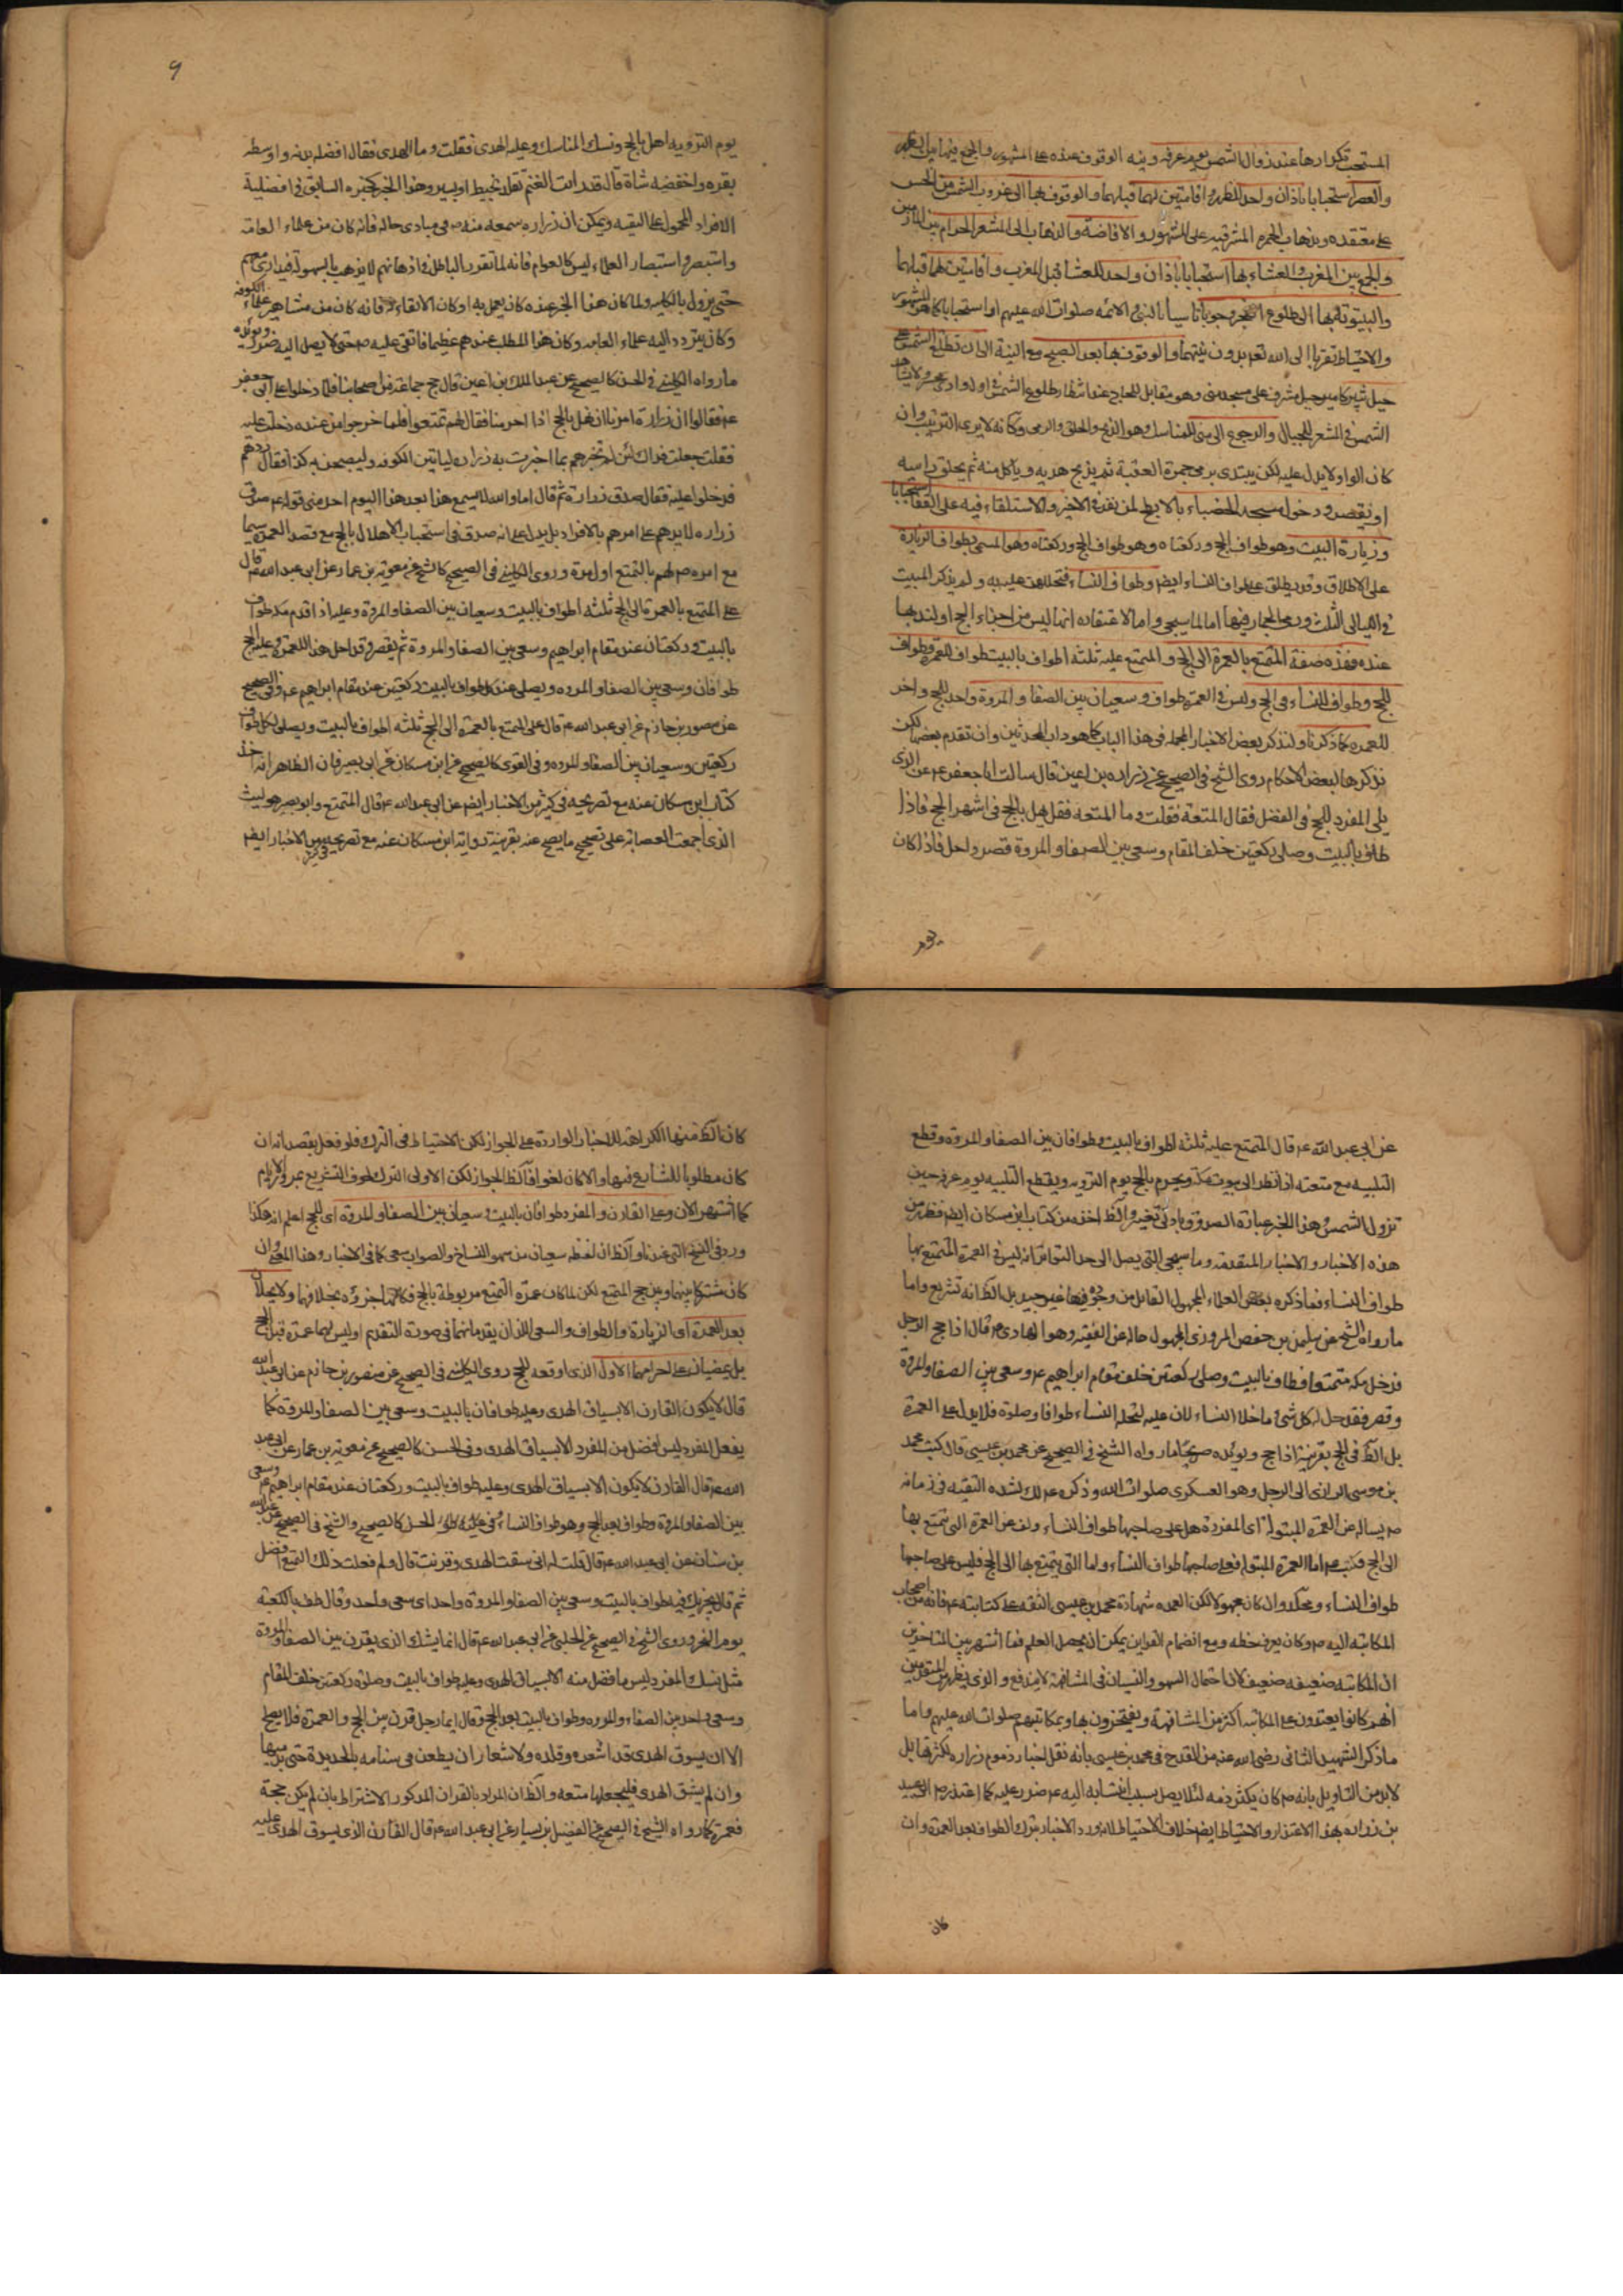 المستحب تكرارها عند زوال الشمس يوم عرفه ونية الوقوف عنده على المشهور والجمع فيها بين الظهر
والعصر استحبابا باذان واحد للظهر واقامتين لهما قبلهما والوقوف بها الى غروب الشمس من الحس
على معتقده وبذهاب الحمرة المشرقيه على المشهور والافاضة والذهاب الى المشعر الحرام بين المازمين
والجمع بين المغرب والعشاء بها استحبابا باذان واحد للعشا قبل المغرب واقامتين لهما قبلهما
والبيتوتة بها الى طلوع الفجر وجوبا تاسيا بالنبى والائمه صلوات الله عليهم او استحبابا كما هو المشهور
والاحتياط تقربا الى الله تعه بدون نيتهما والوقوف بها بعد الصبح مع النية الى ان تطلع الشمس على
جبل ثبير كامير جبل مشرف على مسجد منى وهو مقابل للحاج عند انتظار طلوع الشمس فى اول وادى محسر ولا يشاهد
الشمس فى المشعر للجبال والرجوع الى منى للمناسك وهو الذبح والحلق والرمى وكانه لا يرى الترتيب وان
كان الواو لا يدل عليه لكن يبتدى برمى جمرة العقبة ثم يذبح هديه وياكل منه ثم يحلق راسه
او يقصر ودخول مسجد الحصباء بالابطح لمن نفر فى الاخير والاستلقاء فيه على القفا استحبابا
وزيارة البيت وهو طواف الحج وركعتاه وهو طواف الحج وركعتاه وهو المسمى بطواف الزيارة
على الاطلاق وقد يطلق على طواف النساء ايضا وطواف النساء فتحللهن عليه به ولم يذكر المبيت
فى الليالى الثلث ورمى الجمار فيها اما لما سيجى واما لاعتقاده انها ليس من اجزاء الحج او لندبها
عنده فهذه صفة المتمتع بالعمرة الى الحج والمتمتع عليه ثلثه اطواف بالبيت طواف للعمرة وطواف
للحج وطواف للنساء فى الحج وليس فى العمرة طواف وسعيان بين الصفا والمروة واحد للحج واخر
للعمره كما ذكرنا ولنذكر بعض الاخبار المجمله فى هذا الباب كما هو داب المحدثين وان تقدم بعضها لكن
نذكرها لبعض الاحكام روى الشيخ فى الصحيح عن زراره بن اعين قال سالت ابا جعفر عم عن الذى
يلى المفرد للحج فى الفضل فقال المتعة فقلت وما المتعه فقال يهل بالحج فى اشهر الحج فاذا
طاف بالبيت وصلى ركعتين خلف المقام وسعى بين الصفا والمروة قصر واحل فاذا كان
يوم
٩
يوم الترويه اهل بالحج ونسك المناسك وعليه الهدى فقلت وما الهدى فقال افضله بدنه واوسطه
بقره واخفضه شاة قال قد رايت الغنم تقلد بخيط او بسير وهذا الخبر كخبره السابق فى افضلية
الافراد المحمول على التقيه ويمكن ان زراره سمعه منه ص فى مبادى حاله فانه كان من علماء العامه
واستبصر واستبصار العلماء ليس كالعوام فانه لما تقرر الباطل فى اذهانهم لا يذهب بالسهولة
حتى يزول بالكليه ولما كان هذا الخبر عنده كان يعمل به او كان الاتقاء فانه كان من مشاهير علماء الكوفه
وكان يتردد اليه علماء العامه وكان هذا المطلب عندهم عظيما فاتقى عليه ص حتى لا يصل اليه ضرر ويؤيده
ما رواه الكلينى فى الحسن كالصحيح عن عبد الملك بن اعين قال حج جماعة من اصحابنا فلما دخلوا على ابى جعفر
عم فقالوا ان زرارة امرنا ان نهل بالحج اذا احرمنا فقال لهم تمتعوا فلما خرجوا من عنده دخلت عليه
فقلت جعلت فداك لئن لم تخبرهم بما اخبرت به زراره لياتين الكوفه وليصبحن به كذابا فقال ردهم
فدخلوا عليه فقال صدق زرارة ثم قال اما والله لا يسمع هذا بعد هذا اليوم احد منى قوله عم صدق
زراره لا يردهم على امرهم بالافراد بل يدل على انه صدق فى استحباب الاهلال بالحج مع قصد العمرة سيما
مع امره ص لهم بالتمتع اول مرة وروى الكلينى فى الصحيح كالشيخ عن معويه بن عمار عن ابى عبد الله عم قال
على المتمتع بالعمرة الى الحج ثلثه اطواف بالبيت وسعيان بين الصفا والمروة وعليه اذا قدم مكه طواف
بالبيت وركعتان عند مقام ابراهيم وسعى بين الصفا والمروة ثم يقصر وقد احل هذا للعمرة وعليه للحج
طوافان وسعى بين الصفا والمروه ويصلى عند كل طواف بالبيت ركعتين عند مقام ابراهيم عم وفى الصحيح
عن منصور بن حازم عن ابى عبد الله عم قال على المتمتع بالعمرة الى الحج ثلثه اطواف بالبيت ويصلى لكل طواف
ركعتين وسعيان بين الصفا والمروه وفى القوى كالصحيح عن ابن مسكان عن ابى بصير فان الظاهر انه اخذ
كتاب ابن مسكان عنه مع تصريحه فى كثير من الاخبار ايضا عن ابى عبد الله عم قال المتمتع وابو بصير هو ليث
الذى اجمعت العصابة على تصحيح ما يصح عنه بقرينة رواية ابن مسكان عنه مع تصريحه به فى كثير من الاخبار ايضا
عن ابى عبد الله عم قال المتمتع عليه ثلثه اطواف بالبيت وطوافان بين الصفا والمروة وقطع
التلبيه مع متعته اذا نظر الى بيوت مكه ويحرم بالحج يوم الترويه ويقطع التلبيه يوم عرفه حين
تزول الشمس وهذا الخبر عبارة الصدوق بادنى تغيير والظ اخذه من كتاب ابن مسكان ايضا فظهر من
هذه الاخبار والاخبار المتقدمه وما سيجى التى يصل الى حد التواتر انه ليس فى العمرة المتمتع بها
طواف النساء فما ذكره بعض العلماء المجهول القائل من وجوبه فيها غير جيد بل الظ انه تشريع واما
ما رواه الشيخ عن سليمن بن حفص المروزى المجهول حاله عن الفقيه وهو الهادى ص قال اذا حج الرجل
فدخل مكه متمتعا فطاف بالبيت وصلى ركعتين خلف مقام ابراهيم عم وسعى بين الصفا والمروة
وقصر فقد حل له كل شئ ما خلا النساء لان عليه لتحله النساء طوافا وصلوة فلا يدل على العمرة
بل الظ فى الحج بقرينة اذا حج ويؤيده صريحا ما رواه الشيخ فى الصحيح عن محمد بن عيسى قال كتب محمد
بن موسى الرازى الى الرجل وهو العسكرى صلوات الله وذكره عم لك لشده التقيه فى زمانه
ص يساله عن العمرة المبتولة اى المفردة هل على صاحبها طواف النساء وعن العمرة التى تمتع بها
الى الحج فكتب عم اما العمرة المبتوله فعلى صاحبها طواف النساء واما التى يتمتع بها الى الحج فليس على صاحبها
طواف النساء ومحمد وان كان مجهولا لكن العمده شهادة محمد بن عيسى الثقه على كتابته عم فانه من اصحاب
المكاتبه اليه ص وكان يعرف خطه ومع انضمام القراين يمكن ان يحصل العلم فما اشتهر بين المتاخرين
ان المكاتبه ضعيفه ضعيف لان احتمال السهو والنسيان فى المشافهة لا يندفع والذى يظهر من المتقدمين
انهم كانوا يعتمدون على المكاتبه اكثر من المشافهة ويفتخرون بها وبمكاتبتهم صلوات الله عليهم واما
ما ذكر الشهيد الثانى رضى الله عنه من القدح فى محمد بن عيسى بانه نقل اخبار ذموم زراره لكثرتها بل
لا بد من التاويل بانه ص كان يكثر ذمه لئلا يصل بسبب انتسابه اليه عم ضرر عليه كما اعتذر ص الى عبيد
بن زراره بهذا الاعتذار والاحتياط ايضا خلاف الاحتياط لانه ورد الاخبار بترك الطواف بعد العمرة وان
كان
كان الظ منها الكراهة للاخبار الوارده على الجواز لكن الاحتياط فى الترك فلو فعل بقصد انه ان
كان مطلوبا للشارع فبها والا كان لغوا فالظ الجواز لكن الاولى الترك لخوف التشريع بمرور الايام
كما اشتهر الان وعلى القارن والمفرد طوافان بالبيت وسعيان بين الصفا والمروة اى للحج اعلم انه هكذا
ورد فى النسخ التى عندنا والظ ان لفظه سعيان من سهو النساخ والصواب سعى كما فى الاخبار وهذا المعنى وان
كان مشتركا بينهما وبين حج المتمتع لكن لما كان عمرة التمتع مربوطة بالحج فكانها جزؤه بخلافهما ولا يحلان
بعد العمرة اى الزيارة والطواف والسعى اللذان يقدمانهما فى صورة التقديم او ليس لهما عمرة قبل الحج
بل يمضيان على احرامهما الاول الذى اوقعه للحج روى الكلينى فى الصحيح عن منصور بن حازم عن ابى عبد الله
قال لا يكون القارن الا بسياق الهدى وعليه طوافان بالبيت وسعى بين الصفا والمروة كما
يفعل المفرد ليس افضل من المفرد الا بسياق الهدى وفى الحسن كالصحيح عن معويه بن عمار عن ابى عبد
الله عم قال القارن لا يكون الا بسياق الهدى وعليه طواف بالبيت وركعتان عند مقام ابراهيم عم وسعى
بين الصفا والمروة وطواف بعد الحج وهو طواف النساء وفى الحسن كالصحيح والشيخ فى الصحيح عن عبد الله
بن سنان عن ابى عبد الله عم قال قلت له انى سقت الهدى وقرنت قال ولم فعلت ذلك التمتع افضل
ثم قال يجزيك فيه طواف بالبيت وسعى بين الصفا والمروة واحد اى سعى واحد وقال طف بالكعبه
يوم النحر وروى الشيخ فى الصحيح عن الحلبى عن ابى عبد الله عم قال انما نسك الذى يقرن بين الصفا والمروة
مثل نسك المفرد ليس بافضل منه الا بسياق الهدى وعليه طواف بالبيت وصلوة ركعتين خلف المقام
وسعى واحد بين الصفاء والمروه وطواف بالبيت بعد الحج وقال ايما رجل قرن بين الحج والعمرة فلا يصلح
الا ان يسوق الهدى قد اشعره وقلده والاشعار ان يطعن فى سنامه بالحديدة حتى يدميها
وان لم يسق الهدى فليجعلها متعه والظ ان المراد بالقران المذكور الاشتراط بان لم يكن حجة
فعمرة كما رواه الشيخ فى الصحيح عن الفضيل بن يسار عن ابى عبد الله عم قال القارن الذى يسوق الهدى عليه